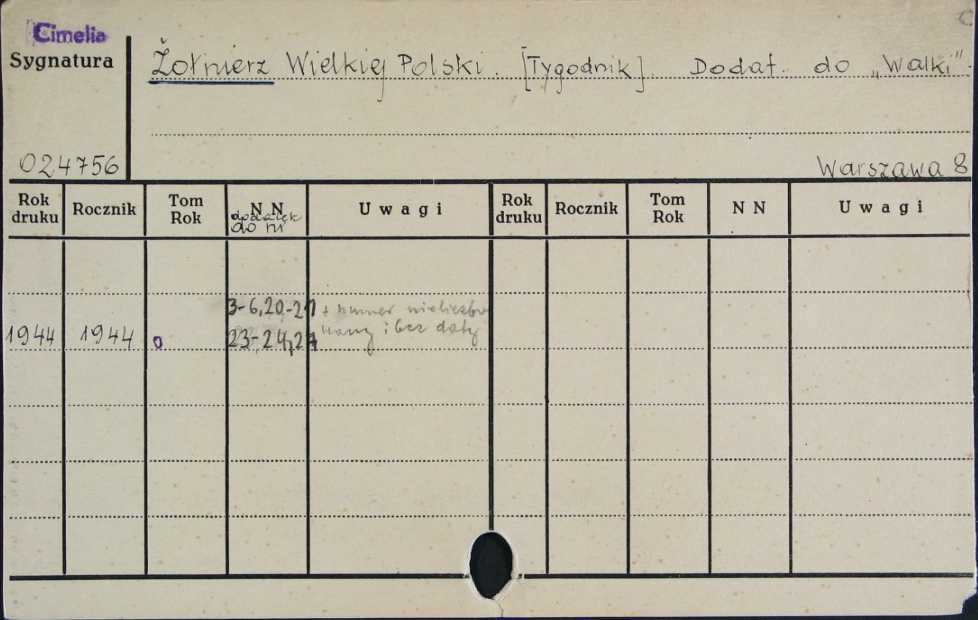 Cimelia
Sygnatura
Żołnierz Wielkiej Polski. [Tygodnik]. Dodat. do „Walki".
024756
Warszawa 8
Rok druku Rocznik Tom Rok NN Uwagi Rok druku Rocznik Tom Rok NN Uwagi
dodatek
do nr
3-6,20-21 + numer nieliczbo
1944 1944 0 23-24,27 wany i bez daty